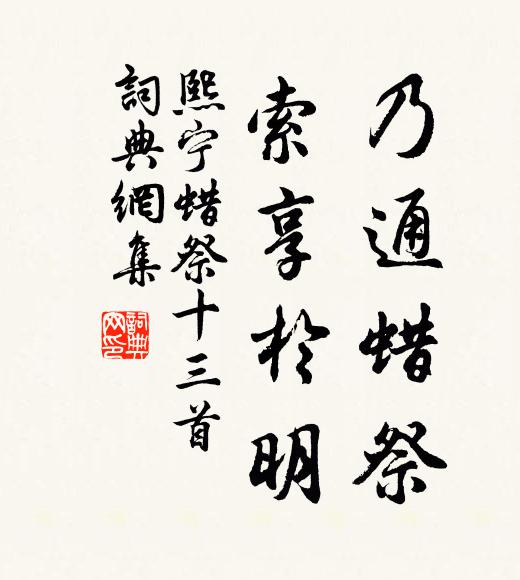 乃通蜡祭
索享於明
熙宁蜡祭十三首
詞典網集
詞典网印